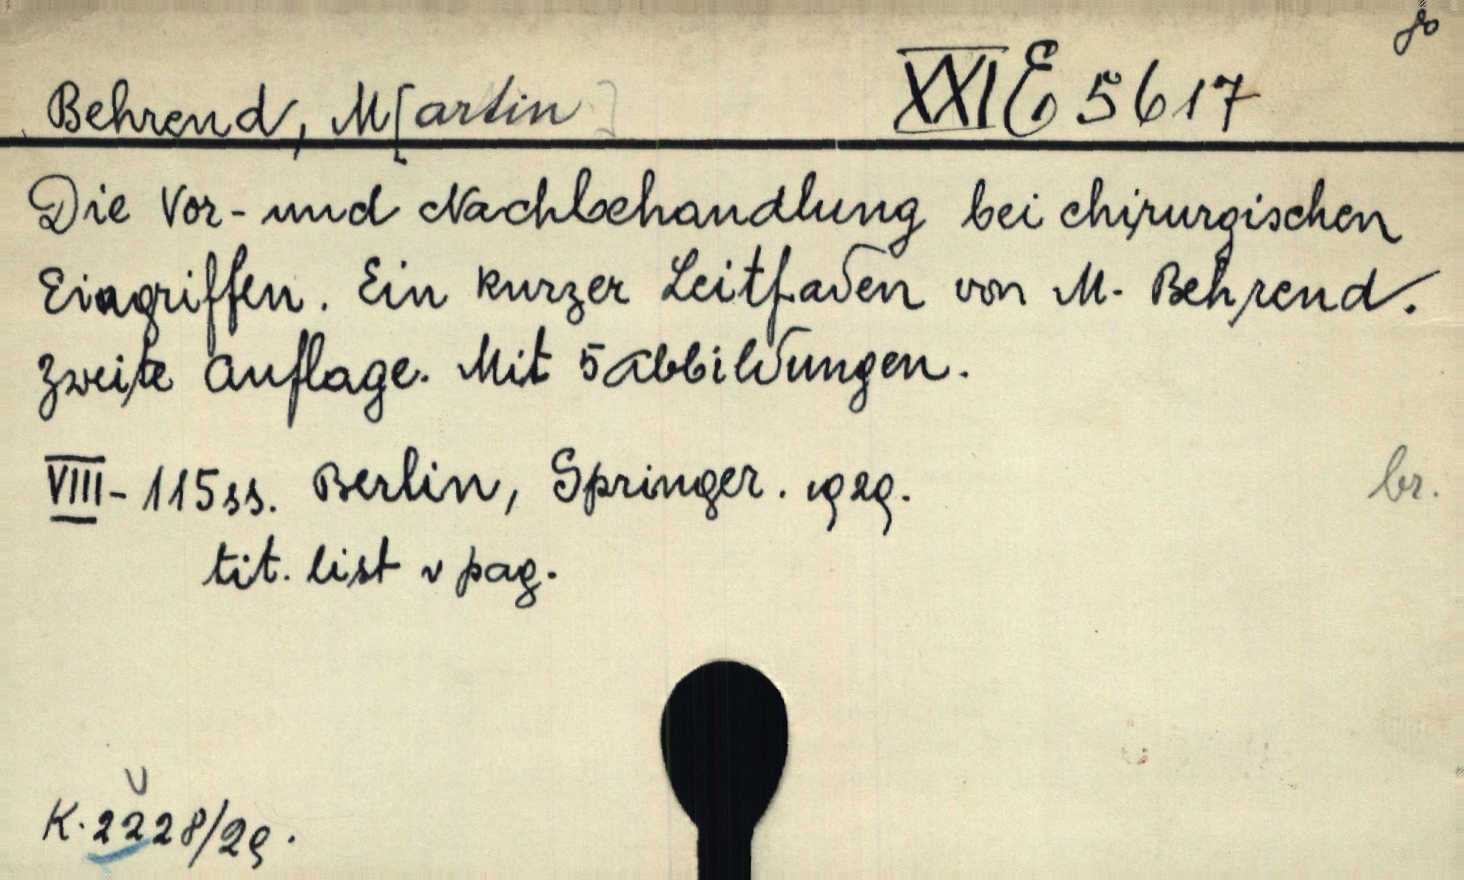 8°
Behrend, M[artin] XXI E 5617
Die Vor- und Nachbehandlung bei chirurgischen
Eingriffen. Ein kurzer Leitfaden von M. Behrend.
Zweite Auflage. Mit 5 Abbildungen.
VIII - 115 ss. Berlin, Springer. 1929. br.
tit. list v pag.
K. 2228/29.